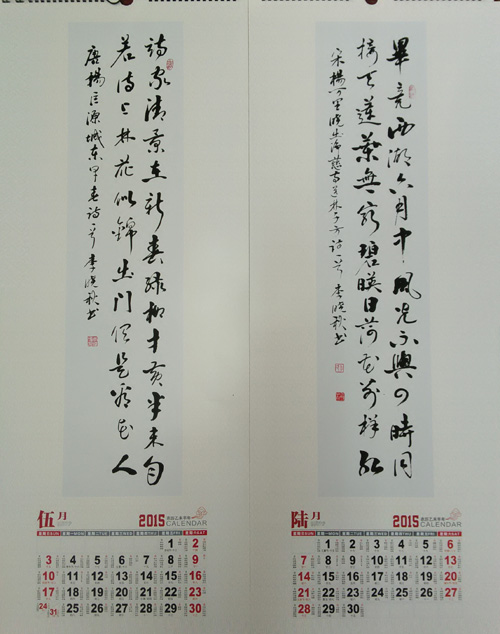 詩家清景在新春綠柳才黄半未匀
若待上林花似錦出門俱是看花人
唐楊巨源城東早春詩一首 李曉秋书
伍月 2015 CALENDAR
1 2
3 4 5 6 7 8 9
10 11 12 13 14 15 16
17 18 19 20 21 22 23
24 31 25 26 27 28 29 30
畢竟西湖六月中風光不與四時同
接天蓮葉無窮碧映日荷花別樣紅
宋楊万里曉出净慈寺送林子方詩一首 李曉秋书
陆月 2015 CALENDAR
1 2 3 4 5 6
7 8 9 10 11 12 13
14 15 16 17 18 19 20
21 22 23 24 25 26 27
28 29 30